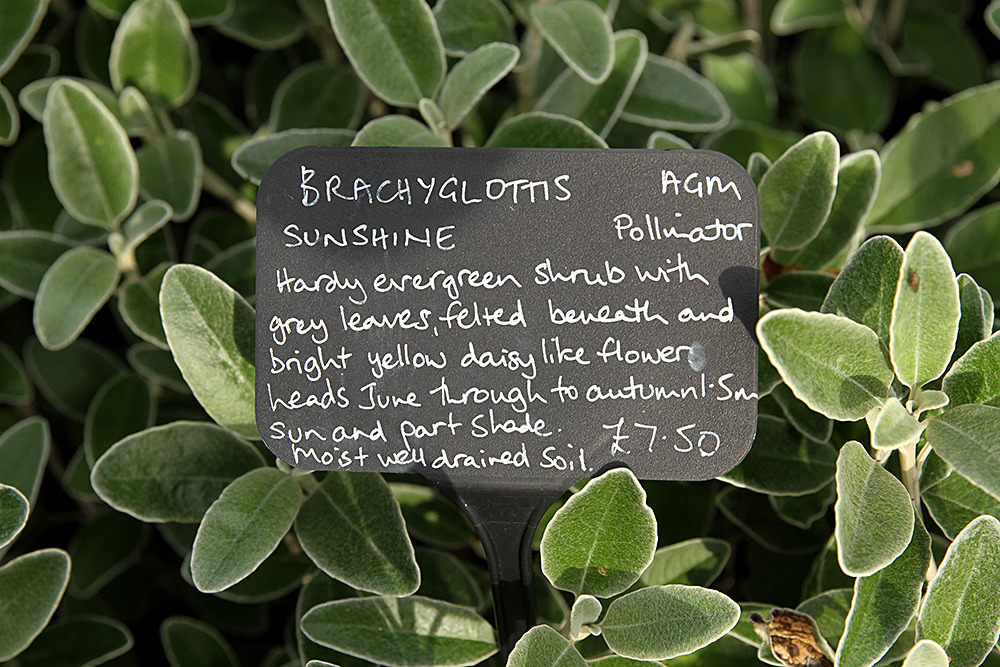 BRACHYGLOTTIS AGM
SUNSHINE Pollinator
Hardy evergreen shrub with
grey leaves, felted beneath and
bright yellow daisy like flower
heads June through to autumn 1.5m
sun and part shade. £7.50
Moist well drained soil.